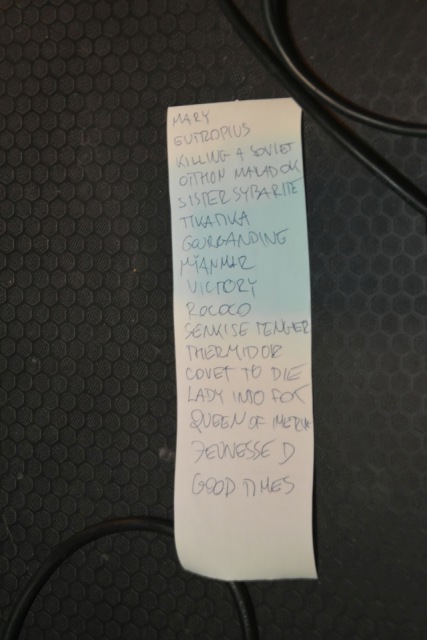 MARY
EUTROPIUS
KILLING A SOVIET
SISTER SYBARITE
TIKATIKA
GOURGANDINE
MYANMAR
VICTORY
ROCOCO
SENKISE TENGER
THERMIDOR
COVET TO DIE
LADY INTO FOX
QUEEN OF
JEUNESSE D
GOOD TIMES